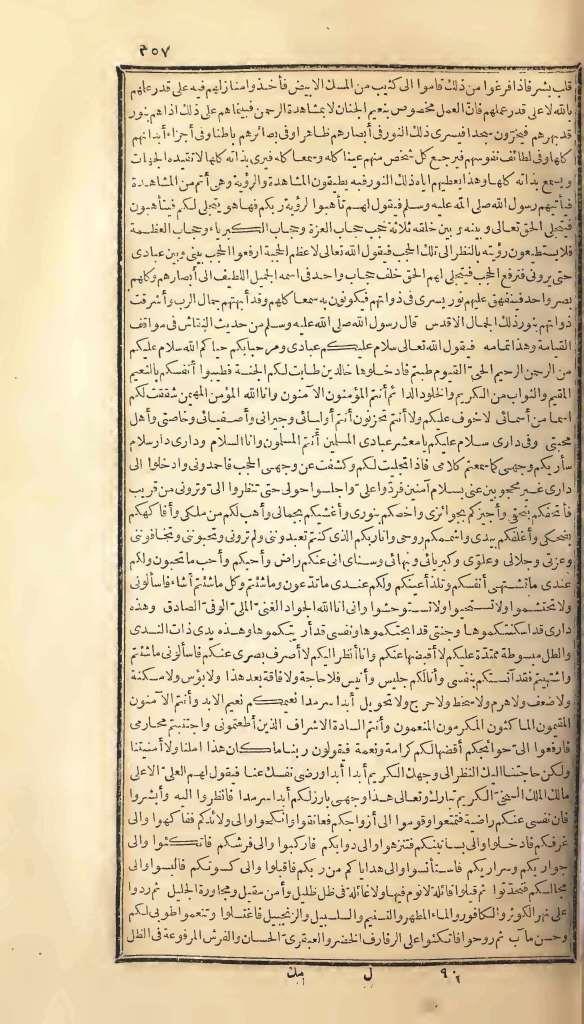 ٤٥٧
قلب بشر فاذا فرغوا من ذلك قاموا الى كثيب من المسك الابيض فأخذوا منازلهم فيه على قدر علمهم
بالله لا على قدر عملهم فان العمل مخصوص بنعيم الجنان لا بمشاهدة الرحمن فبيناهم على ذلك اذا هم بنور
قد بهرهم فيخرون سجدا فيسرى ذلك النور فى أبصارهم ظاهرا وفى بصائرهم باطنا وفى أجزاء أبدانهم
كلها وفى لطائف نفوسهم فيرجع كل شخص منهم عينا كله وسمعا كله فيرى بذاته كلها لا تقيده الجهات
ويسمع بذاته كلها وهذا يعطيهم اياه ذلك النور فبه يطيقون المشاهدة والرؤية وهى أتم من المشاهدة
فيأتيهم رسول الله صلى الله عليه وسلم فيقول لهم تأهبوا لرؤية ربكم فها هو يتجلى لكم فيتأهبون
فيتجلى الحق تعالى وبينه وبين خلقه ثلاثة حجب حجاب العزة وحجاب الكبرياء وحجاب العظمة
فلا يستطيعون رؤيته بالنظر الى تلك الحجب فيقول الله تعالى لاعظم الحجبة ارفعوا الحجب بينى وبين عبادى
حتى يرونى فترفع الحجب فيتجلى لهم الحق خلف حجاب واحد فى اسمه الجميل اللطيف الى أبصارهم وكلهم
بصر واحد فينفهق عليهم نور يسرى فى ذواتهم فيكونون به سمعا كلهم وقد أبهتهم جمال الرب وأشرقت
ذواتهم بنور ذلك الجمال الاقدس قال رسول الله صلى الله عليه وسلم من حديث النقاش فى مواقف
القيامة وهذا تمامه فيقول الله تعالى سلام عليكم عبادى ومرحبا بكم حياكم الله سلام عليكم
من الرحمن الرحيم الحى القيوم طبتم فادخلوها خالدين طابت لكم الجنة فطيبوا أنفسكم بالنعيم
المقيم والثواب من الكريم والخلود الدائم أنتم المؤمنون الآمنون وانا الله المؤمن المهيمن شققت لكم
اسما من أسمائى لا خوف عليكم ولا أنتم تحزنون أنتم أوليائى وجيرانى وأصفيائى وخاصتى وأهل
محبتى وفى دارى سلام عليكم يا معشر عبادى المسلمين أنتم المسلمون وانا السلام ودارى دار سلام
سأريكم وجهى كما سمعتم كلامى فاذا تجليت لكم وكشفت عن وجهى الحجب فاحمدونى وادخلوا الى
دارى غير محجوبين عنى بسلام آمنين فردوا على واجلسوا حولى حتى تنظروا الى وترونى من قريب
فأتحفكم بتحفى وأجيزكم بجوائزى واخصكم بنورى وأغشيكم بجمالى وأهب لكم من ملكى وأفاكهكم
بضحكى وأغلفكم بيدى واشمكم روحى وانا ربكم الذى كنتم تعبدونى ولم ترونى وتحبونى وتخافونى
وعزتى وجلالى وعلوى وكبريائى وبهائى وسنائى انى عنكم راض وأحبكم وأحب ما تحبون ولكم
عندى ما تشتهى أنفسكم وتلذ أعينكم ولكم عندى ما تدعون وما شئتم وكل ما شئتم أشاء فاسألونى
ولا تحتشموا ولا تستحيوا ولا تستوحشوا وانى انا الله الجواد الغنى الملى الوفى الصادق وهذه
دارى قد اسكنتكموها وجنتى قد ابحتكموها ونفسى قد أريتكموها وهذه يدى ذات الندى
والطل مبسوطة ممتدة عليكم لا أقبضها عنكم وانا أنظر اليكم لا أصرف بصرى عنكم فاسألونى ما شئتم
واشتهيتم فقد آنستكم بنفسى وأنا لكم جليس وأنيس فلا حاجة ولا فاقة بعد هذا ولا بؤس ولا مسكنة
ولا ضعف ولا هرم ولا سخط ولا حرج ولا تحويل أبدا سرمدا نعيمكم نعيم الابد وأنتم الآمنون
المقيمون الماكثون المكرمون المنعمون وأنتم السادة الاشراف الذين أطعتمونى واجتنبتم محارمى
فارفعوا الى حوائجكم أقضها لكم كرامة ونعمة فيقولون ربنا ما كان هذا املنا ولا أمنيتنا
ولكن حاجتنا اليك النظر الى وجهك الكريم أبدا أبدا ورضى نفسك عنا فيقول لهم العلى الاعلى
مالك الملك السخى الكريم تبارك وتعالى هذا وجهى بارز لكم أبدا سرمدا فانظروا اليه وأبشروا
فان نفسى عنكم راضية فتمتعوا وقوموا الى أزواجكم فعانقوا وانكحوا والى ولائدكم ففاكهوا والى
غرفكم فادخلوا والى بساتينكم فتنزهوا والى دوابكم فاركبوا والى فرشكم فاتكئوا والى
جواريكم وسراريكم فاستأنسوا والى هداياكم من ربكم فاقبلوا والى كسوتكم فالبسوا والى
مجالسكم فتحدثوا ثم قيلوا قائلة لا نوم فيها ولا غائلة فى ظل ظليل وأمن مقيل ومجاورة الجليل ثم روحوا
على نهر الكوثر والكافور والماء المطهر والتسنيم والسلسبيل والزنجبيل فاغتسلوا وتنعموا طوبى لكم
وحسن مآب ثم روحوا فاتكئوا على الرفارف الخضر والعبقرى الحسان والفرش المرفوعة فى الظل
٩٠ ل مك